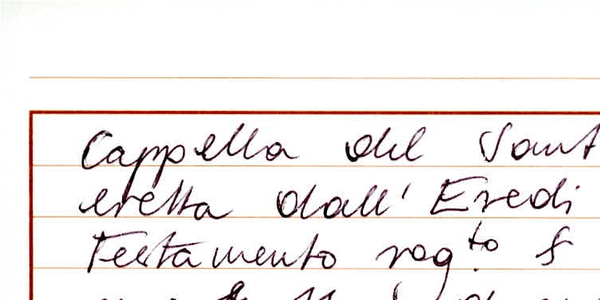 Cappella del Sant
eretta dall' Eredi
Testamento rog.to